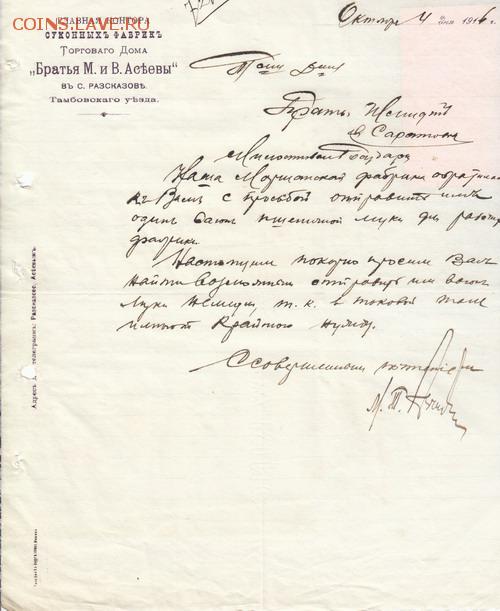 COINS.LAVE.RU
ГЛАВНАЯ КОНТОРА
СУКОННЫХЪ ФАБРИКЪ
Торговаго Дома
„Братья М. и В. Асѣевы“
ВЪ С. РАЗСКАЗОВѢ.
Тамбовскаго уѣзда.
Октября 4 дня 1916 г.
Т-ом Дом
Братья Шмидтъ
въ Саратовѣ
Милостивые Государи
Наша Моршанская фабрика обратилась
къ Вамъ с просьбой отправить имъ
один вагонъ пшеничной муки для рабочих
фабрики.
Настоящим покорно просим Васъ
найти возможным отправить им вагонъ
муки немедля, т. к. в таковой там
имеют крайнюю нужду.
С совершенным почтением
М. Т.
Адресъ для телеграммъ: Разсказово, Асѣевымъ.